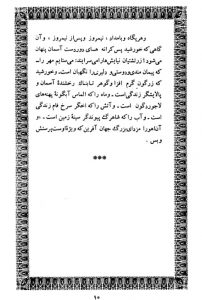 وهر پگاه و بامداد ، نیمروز و پس از نیمروز ، و آن
گاهی که خورشید پس کرانه های دوردست آسمان پنهان
میشود ، زرتشتیان نیایش‌هارا می‌سرایند : می‌ستایم مهر را
که پیمان مندی ودوستی و دلیری را نگهبان است . وخورشید
که زرگون گرم افزا وگوهر تابناک رخشندهٔ آسمان و
پالایشگر زندگی است . وماه را که الماس آبگونهٔ پهنه‌های
لاجوردگون است . و آتش را که اخگر سرخ فام زندگی
است . و آب را که شاهرگ پیوندگر سینهٔ زمین است . و
آناهورا مزدای بزرگ جهان آفرین که ویژهٔ اوست پرستش
و بس .
***
۱۰